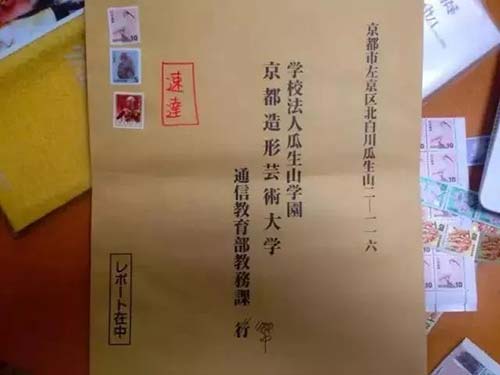 京都市左京区北白川瓜生山二―一一六
学校法人瓜生山学園
京都造形芸術大学
通信教育部教務課 行
御中
速達
レポート在中
10
10
10